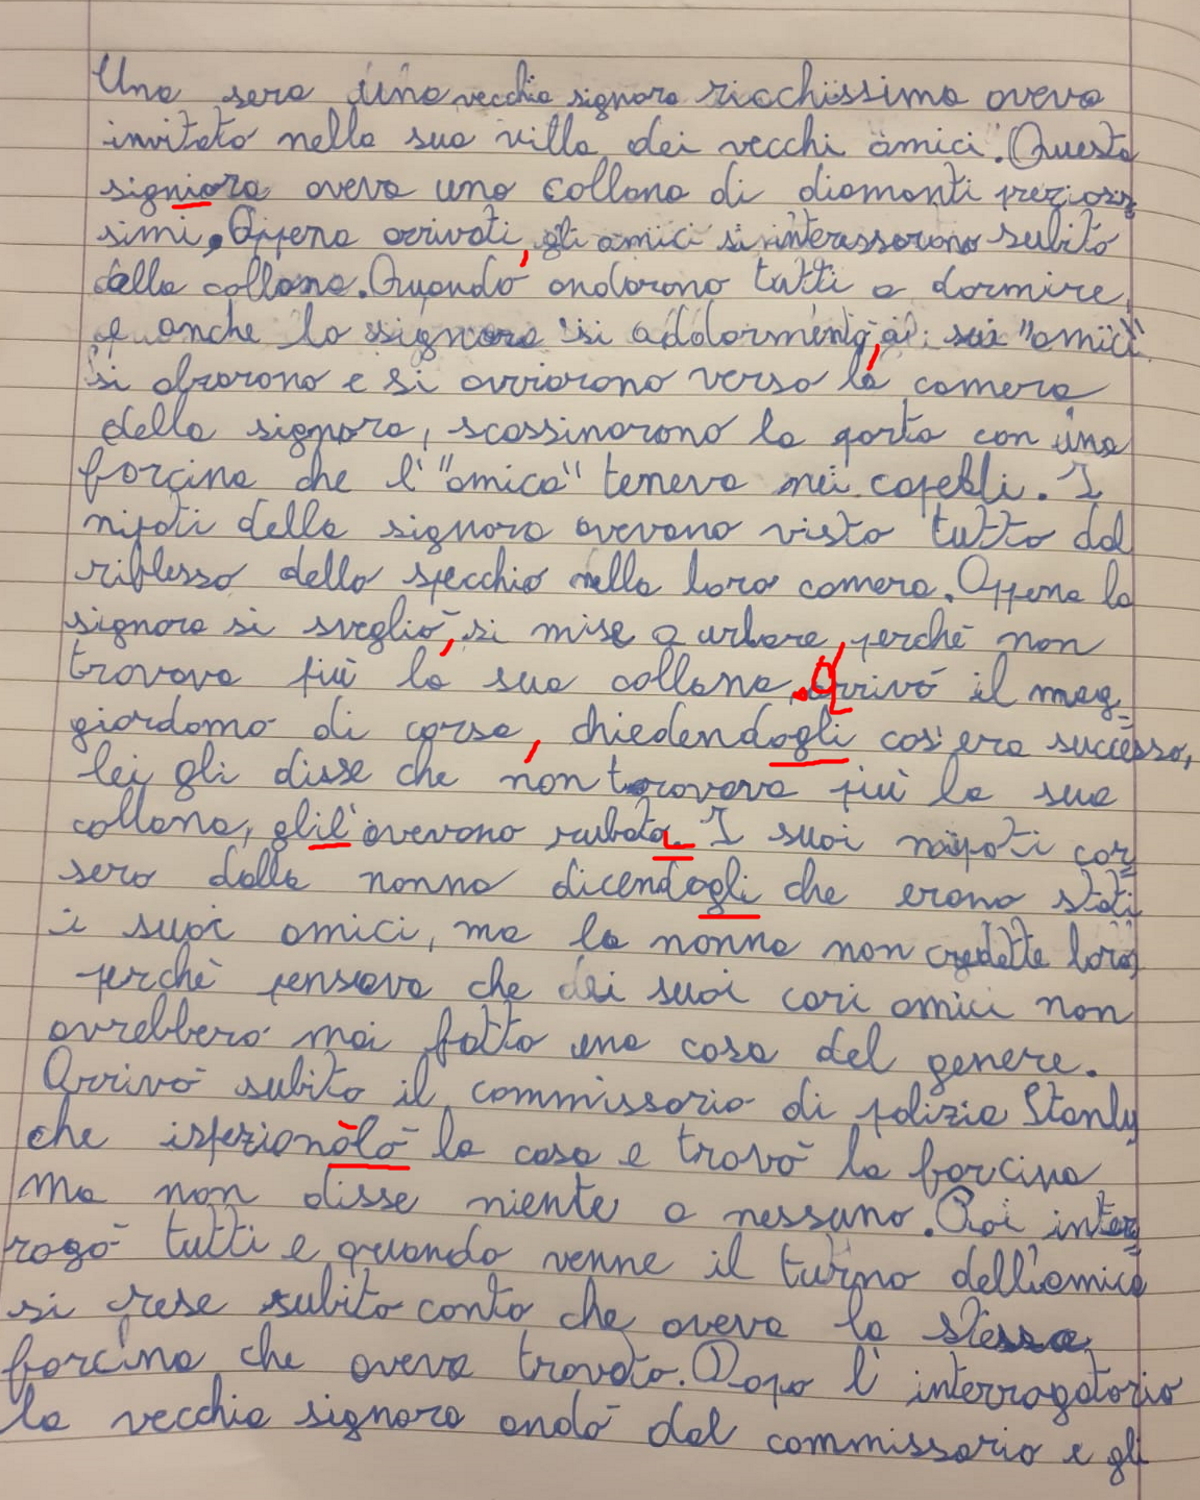 Una sera una vecchia signora ricchissima aveva
invitato nella sua villa dei vecchi amici. Questa
signiora aveva una collana di diamanti prezios
simi. Appena arrivati, gli amici si interassarono subito
della collana. Quando andarono tutti a dormire,
e anche la signora si addormentò, i suoi "amici"
si alzarono e si avviarono verso la camera
della signora, scassinarono la porta con una
forcina che l'"amica" teneva nei capelli. I
nipoti della signora avevano visto tutto dal
riflesso dello specchio nella loro camera. Appena la
signora si svegliò, si mise a urlare, perchè non
trovava più la sua collana. Arrivò il mag-
giordomo di corsa, chiedendogli cos'era successo,
lei gli disse che non trovava più la sua
collana, glil'avevano rubata. I suoi nipoti cor
sero dalla nonna dicendogli che erano stati
i suoi amici, ma la nonna non credette loro,
perchè pensava che dei suoi cari amici non
avrebbero mai fatto una cosa del genere.
Arrivò subito il commissario di polizia Stanly
che ispezionòlò la casa e trovò la forcina
ma non disse niente a nessuno. Poi inter
rogò tutti e quando venne il turno dell'amica
si rese subito conto che aveva la stessa
forcina che aveva trovato. Dopo l'interrogatorio
la vecchia signora andò dal commissario e gli